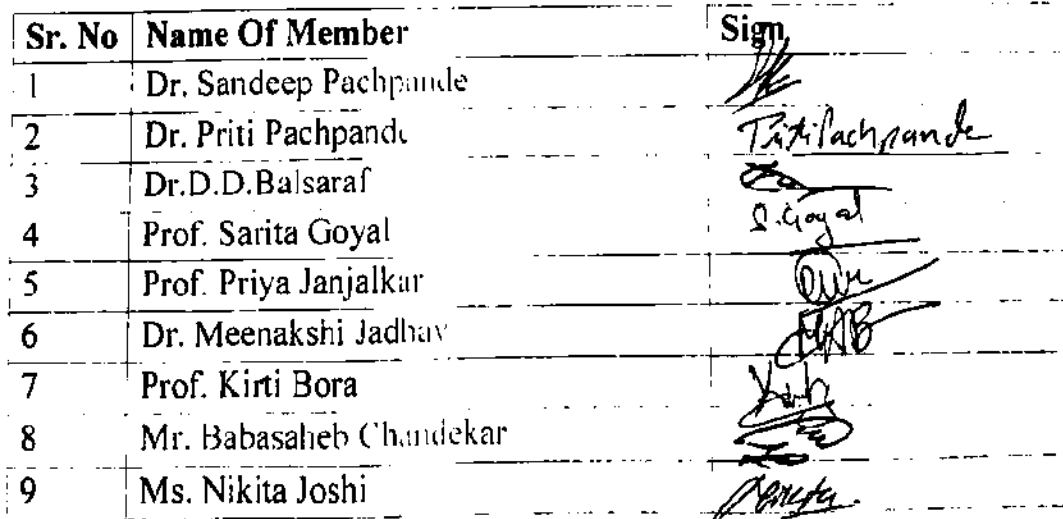 Sr. No Name Of Member Sign
1 Dr. Sandeep Pachpande
2 Dr. Priti Pachpande Priti Pachpande
3 Dr.D.D.Balsaraf
4 Prof. Sarita Goyal S. Goyal
5 Prof. Priya Janjalkar
6 Dr. Meenakshi Jadhav
7 Prof. Kirti Bora
8 Mr. Babasaheb Chandekar
9 Ms. Nikita Joshi